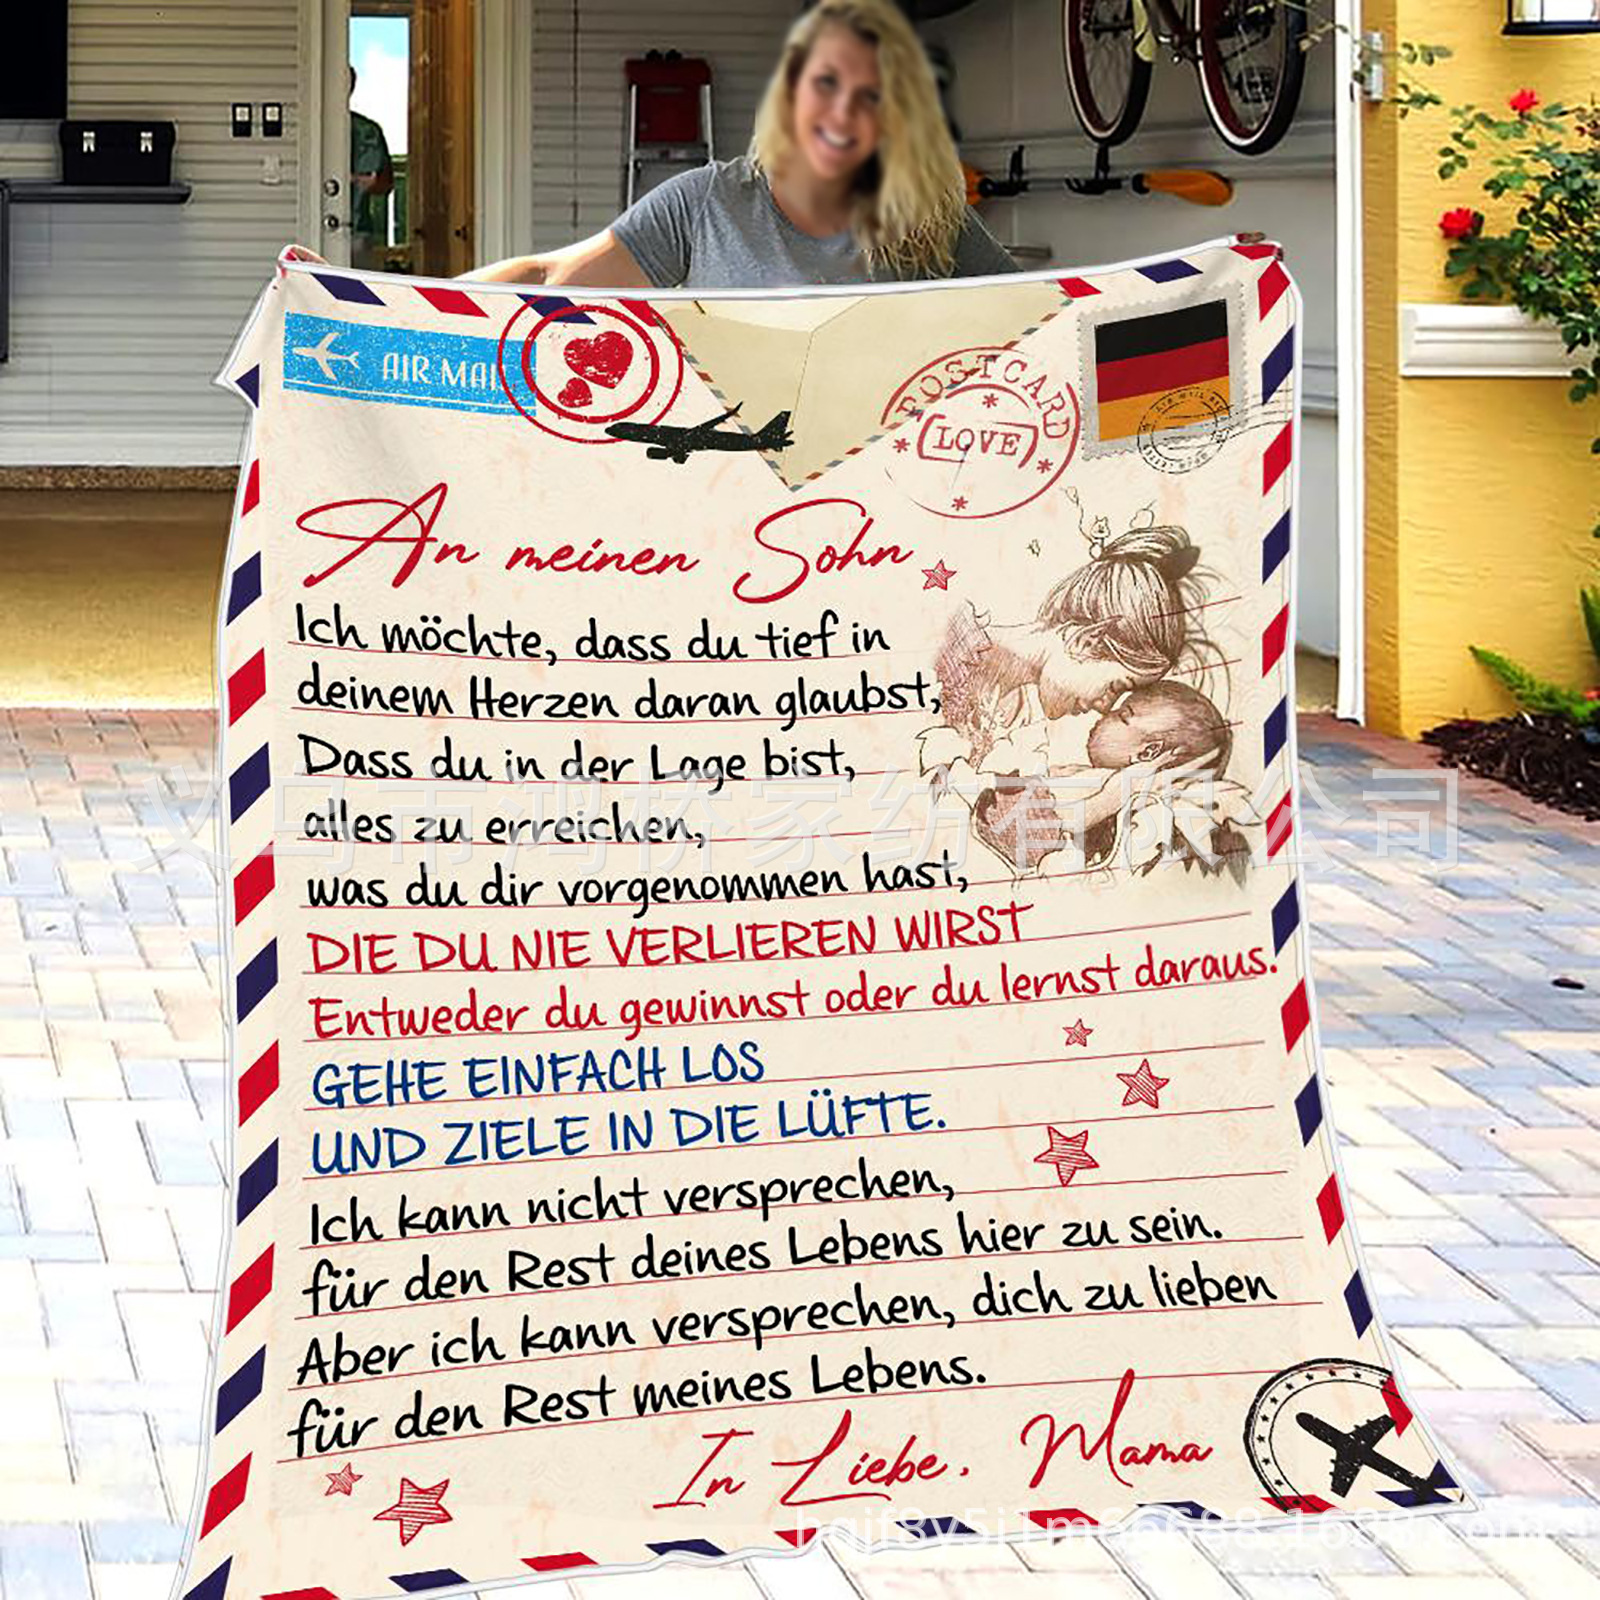 AIR MAIL
POSTCARD
LOVE
An meinen Sohn
Ich möchte, dass du tief in
deinem Herzen daran glaubst,
Dass du in der Lage bist,
alles zu erreichen,
义乌市鸿桥家纺有限公司
was du dir vorgenommen hast,
DIE DU NIE VERLIEREN WIRST
Entweder du gewinnst oder du lernst daraus.
GEHE EINFACH LOS
UND ZIELE IN DIE LÜFTE.
Ich kann nicht versprechen,
für den Rest deines Lebens hier zu sein.
Aber ich kann versprechen, dich zu lieben
für den Rest meines Lebens.
In Liebe, Mama